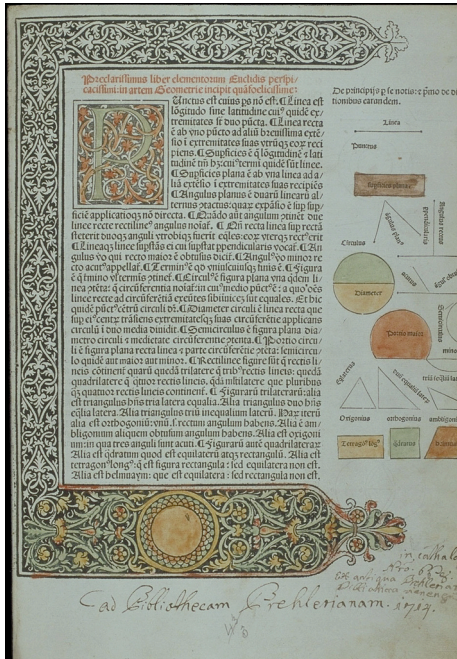 Preclarissimus liber elementorum Euclidis perspi-
cacissimi: in artem Geometrie incipit quāfoelicissime:
Punctus est cuius ps nō est. ¶ Linea est
lōgitudo sine latitudine cuiꝰ quidē ex-
tremitates sunt duo pūcta. ¶ Linea recta
ē ab vno pūcto ad aliū breuissima extē-
sio i extremitates suas vtrūqꝫ eoꝝ reci
piens. ¶ Supficies ē q̄ lōgitudinē ⁊ lati
tudinē tm̄ hꝫ: cuiꝰ termi quidē sūt linee.
¶ Supficies plana ē ab vna linea ad a-
liā extēsio i extremitates suas recipiēs
¶ Angulus planus ē duarū linearū al-
ternus ptactus: quaꝝ expāsio ē sup sup-
ficiē applicatioqꝫ nō directa. ¶ Quādo aūt angulum ptinēt due
linee recte rectilineꝰ angulus noiaf. ¶ Qn̄ recta linea sup rectā
steterit duoqꝫ anguli vtrobiqꝫ fuerit eq̄les: eoꝝ vterqꝫ rectꝰ erit
¶ Lineaqꝫ linee supstās ei cui supstat ppendicularis vocaf. ¶ An
gulus vo qui recto maior ē obtusus dicif. ¶ Angulꝰ vo minor re
cto acutꝰ appellaf. ¶ Terminꝰ ē qd vniuscuiusqꝫ finis ē. ¶ Figura
ē q̄ tmino vl terminis ptinef. ¶ Circulꝰ ē figura plana vna qdem li-
nea ptēta: q̄ circūferentia noiaf: in cuiꝰ medio pūctꝰ ē: a quo oēs
linee recte ad circūferētiā exeūtes sibiinuicē sūt equales. Et hic
quidē pūctꝰ cētrū circuli dr̄. ¶ Diameter circuli ē linea recta que
sup eiꝰ centꝝ trāsiens extremitatesqꝫ suas circūferētie applicans
circulū i duo media diuidit. ¶ Semicirculus ē figura plana dia-
metro circuli ⁊ medietate circūferentie ptenta. ¶ Portio circu-
li ē figura plana recta linea ⁊ parte circūferētie ptēta: semicircu-
lo quidē aut maior aut minor. ¶ Rectilinee figure sūt q̄ rectis li-
neis cōtinenf quarū quedā trilatere q̄ tribꝰ rectis lineis: quedā
quadrilatere q̄ quatuor rectis lineis. qdā mltilatere que pluribus
qꝫ quatuor rectis lineis continenf. ¶ Figurarū trilaterarū: alia
est triangulus hn̄s tria latera equalia. Alia triangulus duo hn̄s
eq̄lia latera. Alia triangulus triū inequalium laterū. Haꝝ iterū
alia est orthogoniū: vnū .s. rectum angulum habens. Alia ē am-
bligonium aliquem obtusum angulum habens. Alia est oxigoni
um: in qua tres anguli sunt acuti. ¶ Figurarū autē quadrilateraꝝ
Alia est qdratum quod est equilaterū atqꝫ rectāgulū. Alia est
tetragonꝰ longꝰ: q̄ est figura rectangula: sed equilatera non est.
Alia est helmuaym: que est equilatera: sed rectangula non est.
De principijs p se notis: ⁊ pmo de di
tionibus earandem.
Linea
Punctus
Supficies plana
Angulus planꝰ
ppendicularis
Angulus rectus
Circulus
Diameter
acutus
Portio maior
Semicirculus
mino
Equilaterus
duū equaliū lateꝝ
triū īeq̄liū lat
Oxigonius
orthogonius
ambligoni
Tetragonꝰ lōgꝰ
q̄dratus
helmua
Ad Bibliothecam Prehlerianam. 1714.